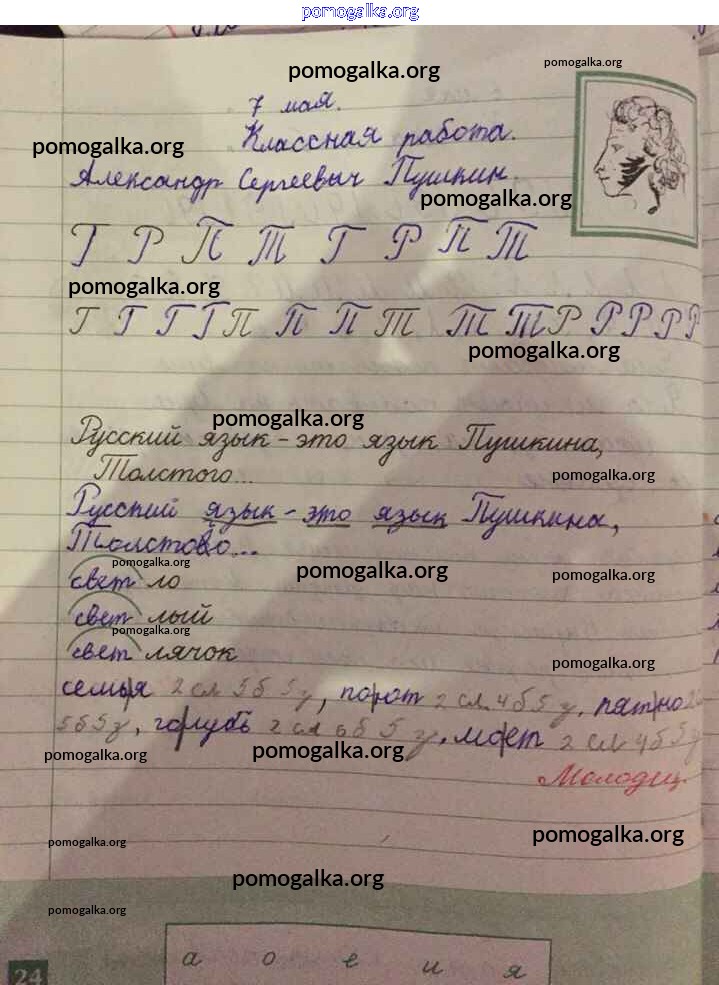 pomogalka.org
pomogalka.org
pomogalka.org
7 мая.
Классная работа.
pomogalka.org
Александр Сергеевич Пушкин.
pomogalka.org
Г Р П Т Г Р П Т
pomogalka.org
Г Г Г Г П П П Т Т Т Р Р Р Р Р
pomogalka.org
pomogalka.org
Русский язык – это язык Пушкина,
Толстого...
pomogalka.org
Русский язык – это язык Пушкина,
Толстово...
pomogalka.org
pomogalka.org
pomogalka.org
светло
светлый
pomogalka.org
светлячок
pomogalka.org
семья 2 сл 5 б 5 з, порот 2 сл. 4 б 5 з, пятно 2
5 б 5 з, голубь 2 сл 6 б 5 з, мОет 2 сл 4 б 5 з
pomogalka.org
pomogalka.org
Молодец.
pomogalka.org
pomogalka.org
pomogalka.org
pomogalka.org
24
а о е и я